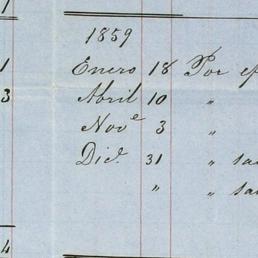 1
1859
1 Enero 18 Por ef
3 Abril 10 "
Nov.e 3 "
Dic.e 31 " sa
" " sa
4